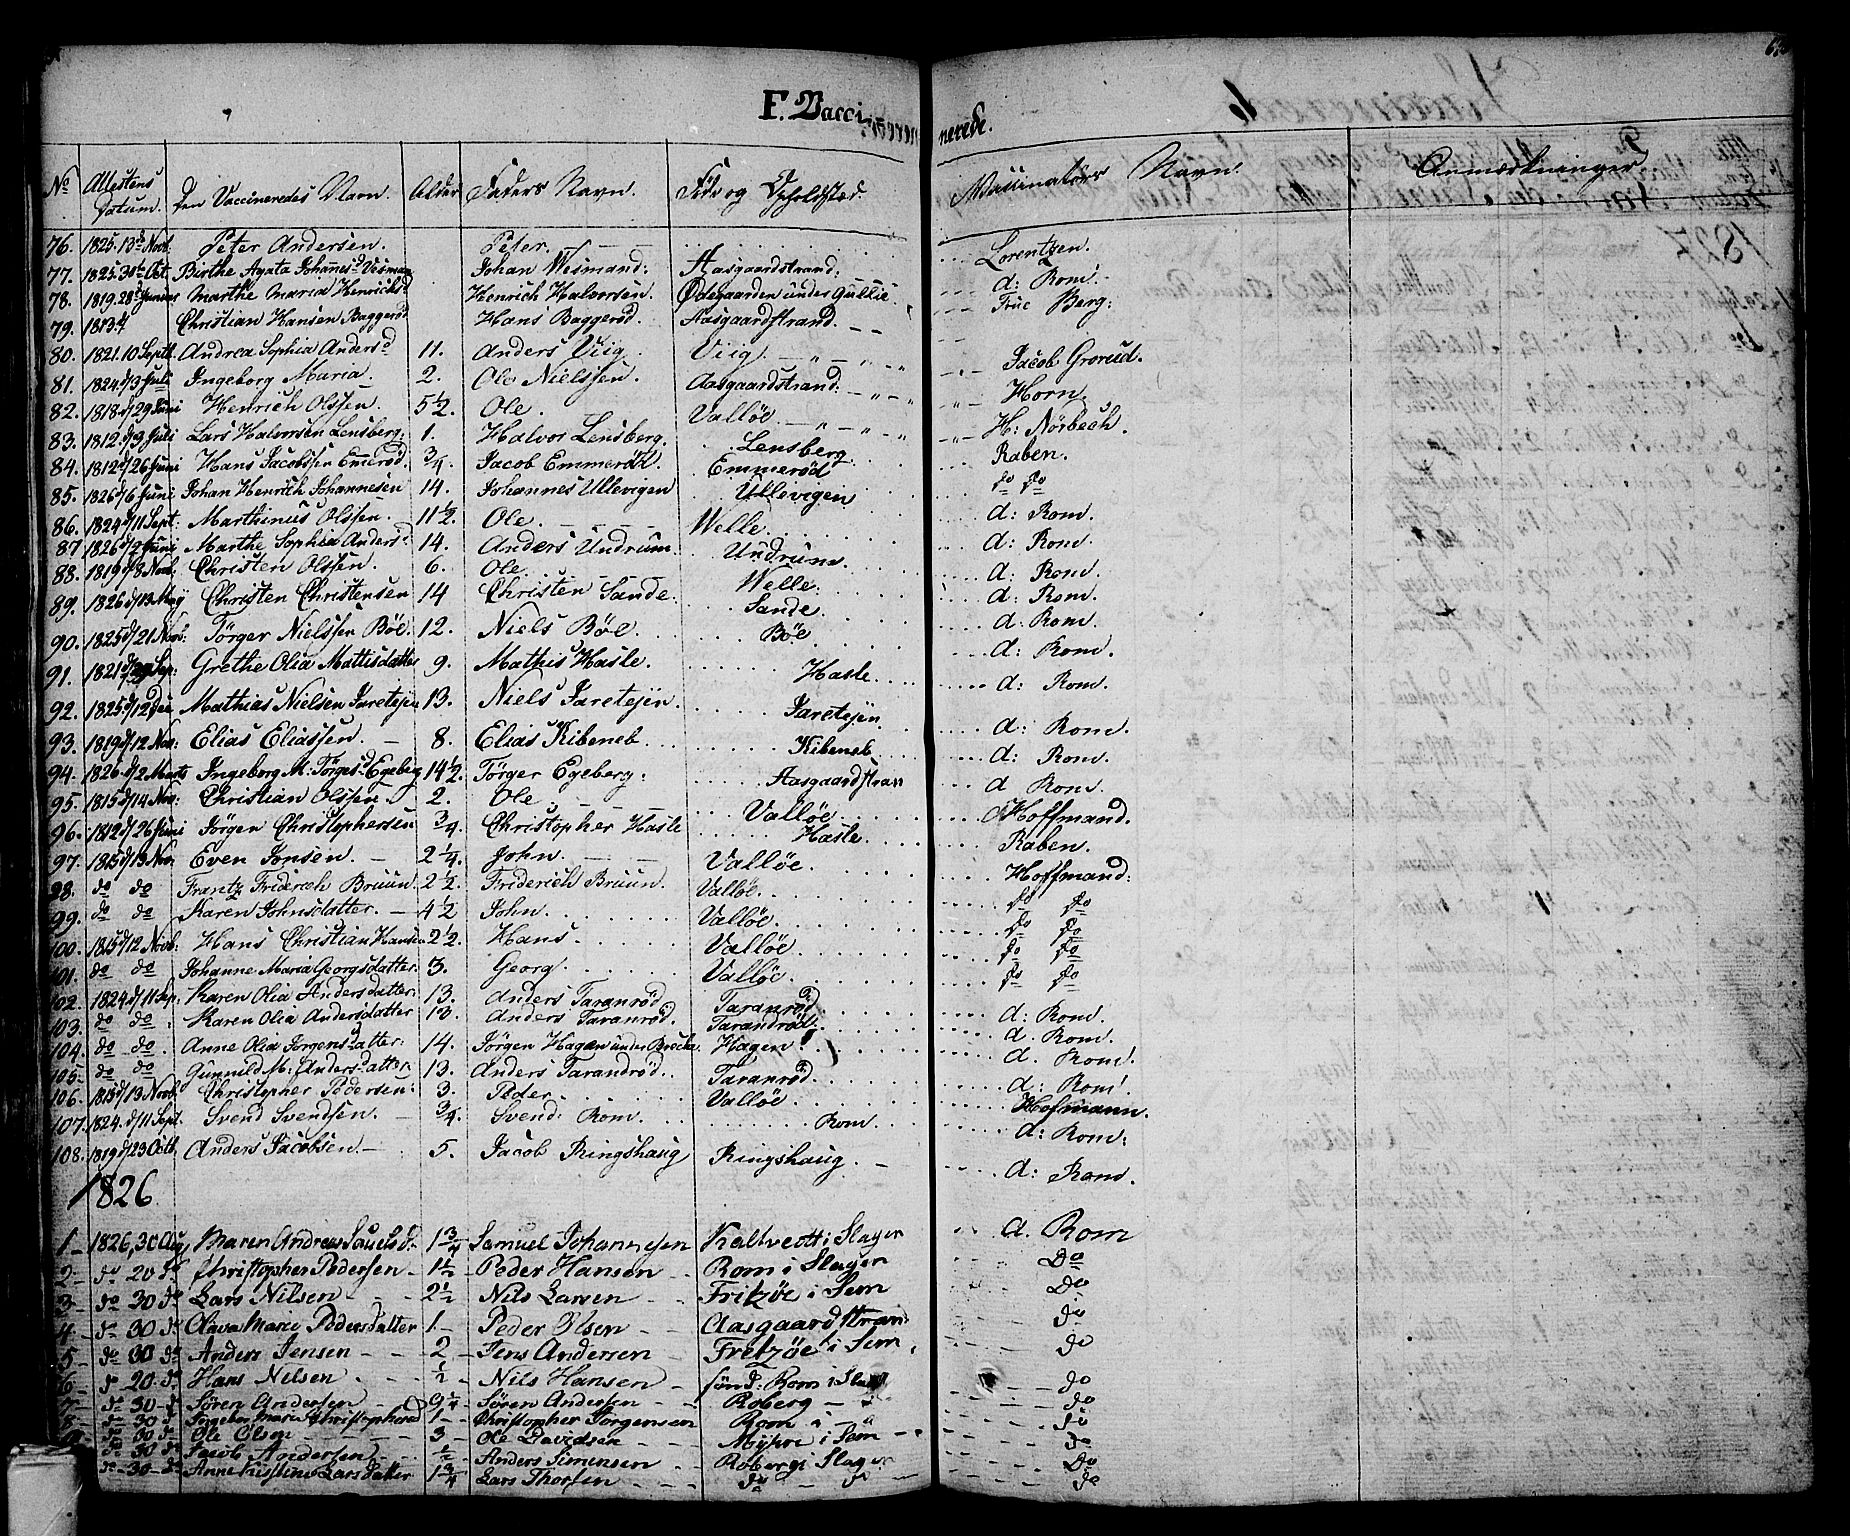 F. Vaccinerede.
No Attestens Datum. Den Vaccineredes Navn. Alder Faders Navn. Føde og Opholdsted. Vaccinatørs Navn. Anmærkninger.
76. 1825. 13de Novb. Peter Andersen. Peter. Lorentzen.
77. 1825. 30te Oct. Birthe Agata Johannesd Vesman Johan Wesmand: Aasgaardstrand. d: Rom.
78. 1819. 28de Junius Marthe Maria Henrichsd Henrich Halvorsen. Ødegaarden under Gullie. Frue Berg:
79. 1813 4/ Christian Hansen Baggerød Hans Baggerød. Aasgaardstrand.
80. 1821. 10 Septb. Andrea Sophia Andersd 11. Anders Viig. Viig. Jacob Grorud.
81. 1824 d/3 Juli Ingeborg Maria. 2. Ole Nielssen. Aasgaardstrand. Horn.
82. 1818. d/29 Juni Henrich Olssen. 5 1/2. Ole. Valløe. H: Nørbech.
83. 1812. d/9 Juli Lars Halvorsen Lensberg. 1. Halvor Lensberg. Lensberg. Raben.
84. 1812 d/26 Juni Hans Jacobssen Emerød. 3/4. Jacob Emmerød. Emmerød do do
85. 1826 d/6 Juni Johan Henrich Johannesen 14. Johannes Ullevigen Ullevigen d: Rom.
86. 1824 d/11 Sept: Marthinus Olssen. 11 1/2. Ole. Welle. d: Rom.
87 1826 d/2 Juni Marthe Sophia Andersd 14. Anders Undrum. Undrum. d: Rom.
88. 1819 d/8 Novb: Christen Olssen. 6. Ole. Welle. d: Rom.
89. 1826 d/13 May Christen Christensen 14 Christen Sande. Sande. d: Rom.
90. 1825 d/21 Novb. Törger Nielssen Böe. 12. Niels Böe. Böe d: Rom.
91. 1821 d/29 Sep: Grethe Olia Mattisdatter 9. Mathis Hasle. Hasle. d: Rom.
92. 1825 d/12 Dec Mathias Nielsen Jaretejen 13. Niels Jaretejen. Jaretejen d: Rom.
93. 1819 d/12 Nov: Elias Eliassen. 8. Elias Kibeneb. Kibeneb. d: Rom.
94. 1826 d/2 Marts Ingeborg M: Törgesd Egeberg 14 1/2. Törger Egeberg. Aasgaardstran d Rom.
95. 1815 d/14 Nov: Christian Olssen. 2. Ole Valløe. Hoffmand.
96. 1812 d/26 Juni Jörgen Christophersen 3/4. Christopher Hasle Hasle. Raben.
97. 1815 d/13 Nov. Even Jonsen. 2 1/4. John. Valløe. Hoffmand:
98. do do Frantz Friderich Bruun. 2 1/2. Friderich Bruun. Valløe. do do
99. do do Karen Johnsdatter. 4 1/2 John. Valløe. do do
100. 1815 d/12 Novb: Hans Christian Hansen 2 1/2. Hans. Valløe do do
101. do do Johanne Maria Georgsdatter 3. Georg. Valløe. do do
102. 1824 d/11 Sep: Karen Olia Andersdatter. 13. Anders Taranrød. Taranrød. d: Rom.
103. do do Karen Olia Andersdatter 13. Anders Taranrød. Tarandrød. d. Rom.
104. do do. Anne Olia Jörgensdatter. 14. Jörgen Hagen under Brecke. Hagen. d. Rom.
105. do do Gunnild M: Andersdatter. 13. Anders Tarandrød. Taranrød. d: Rom.
106. 1815 d/13 Novb. Christopher Pedersen. 3. Peder. Valløe. Hofmann.
107. 1824. d/11 Sept. Svend Svendsen. 3/4. Svend: Rom. Rom. d: Rom:
108. 1819 d/23 Octb. Anders Jacobsen. 5. Jacob Ringshaug Ringshaug. d: Rom.
1826
1 1826, 30 Aug Maren Andrea Samelsd. 1 3/4 Samuel Johannesen Kaltvedt i Slagen d. Rom
2 do 20 do Christopher Pedersen 1 1/2 Peder Hansen Rom i Slagen Do
3 do 30 do Lars Nilsen 2 1/2 Nils Larsen Fritzøe i Sem do
4. do 30 do Olava Marie Pedersdatter 1 Peder Olsen Aasgaardstran: do
5 do 30 do Anders Jensen 2 Jens Andersen Fretzøe i Sem. do
6 do 20. do Hans Nilsen 1/2 Nils Hansen sønd: Rom i Slag do
7 do 30 do Sören Andersen 9 1/4 Sören Andersen Roberg do
8 do 30 do Ingebor Marie Christophersd 1 Christopher Jörgensen Rom i do
9 do 30 do Ole Olsen 3 Ole Davidsen i Sem do
do 30 do Jacob Andersen 1/2 Anders Simensen Roberg i Slagen Do
do 30 do Anne Kistine Larsdatter 1 3/4 Lars Thorsen do do do
1827